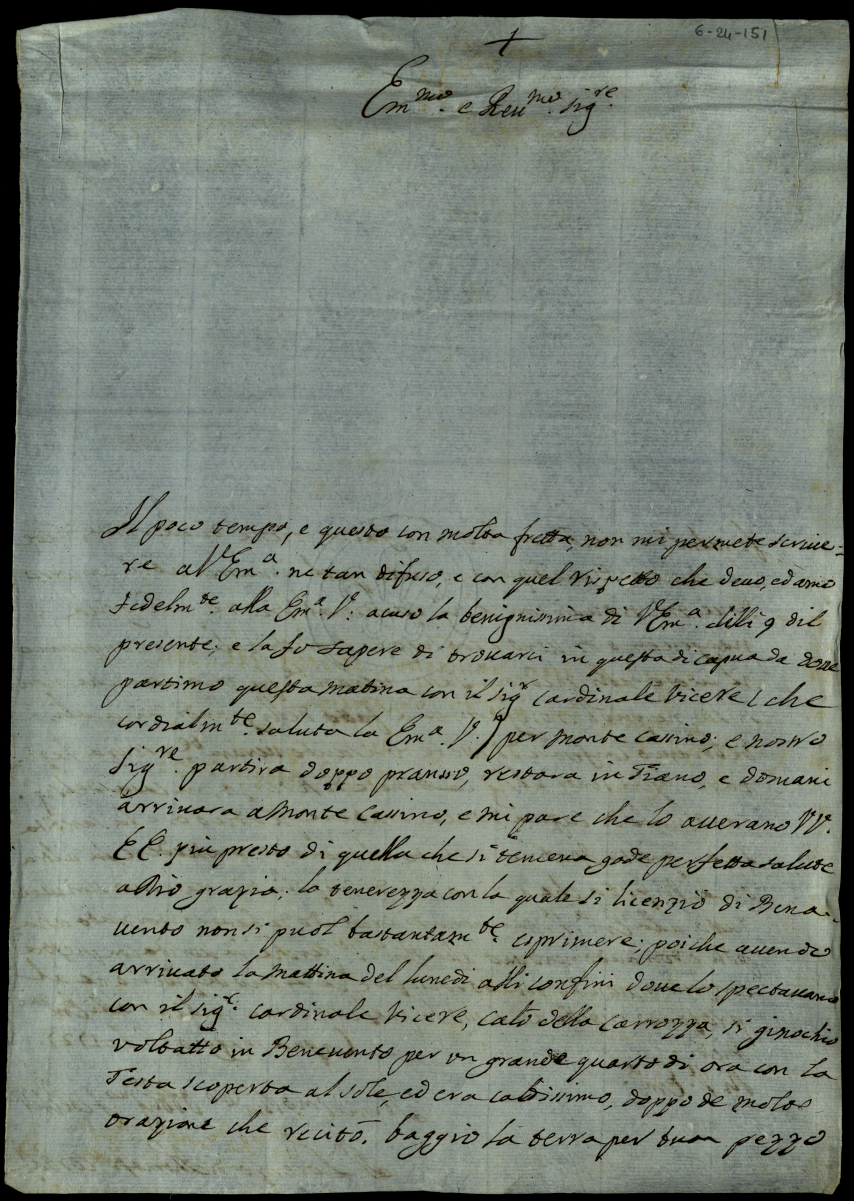 6-24-151
+
Em.mo e Reu.mo sig.re
Il poco tempo, e questo con molta fretta, non mi permete scriue=
re al V Em.a ne tan difuso, e con quel rispetto che deuo, ed amo
fedelm.te alla Em.a V.a acuso la benignissima di V Em.a delli 9 dil
presente; e la fo sapere di trouarci in questa di capua da doue
partimo questa matina con il sig.r cardinale Vicere ( che
cordialm.te saluta la Em.a V.a ) per monte cassino; e nostro
sig.re partira doppo pranso, restara in Tiano, e domani
arriuara a Monte Cassino, e mi pare che lo auerano VV.
EE. piu presto di quella che si temena gode perfetta salute
a Dio grazia; la tenerezza con la quale si licenziò di Bene-
uento non si puol bastantam.te esprimere; poiche auendo
arriuato la mattina del lunedi alli confini doue lo spectauano
con il sig.r cardinale Vicere, calò della Carrozza, si ginochiò
voltatto in Beneuento per un grande quarto di ora con la
Testa scoperta al sole, ed era caldissimo, doppo de molte
orazione che recitò, baggiò la terra per buon pezzo